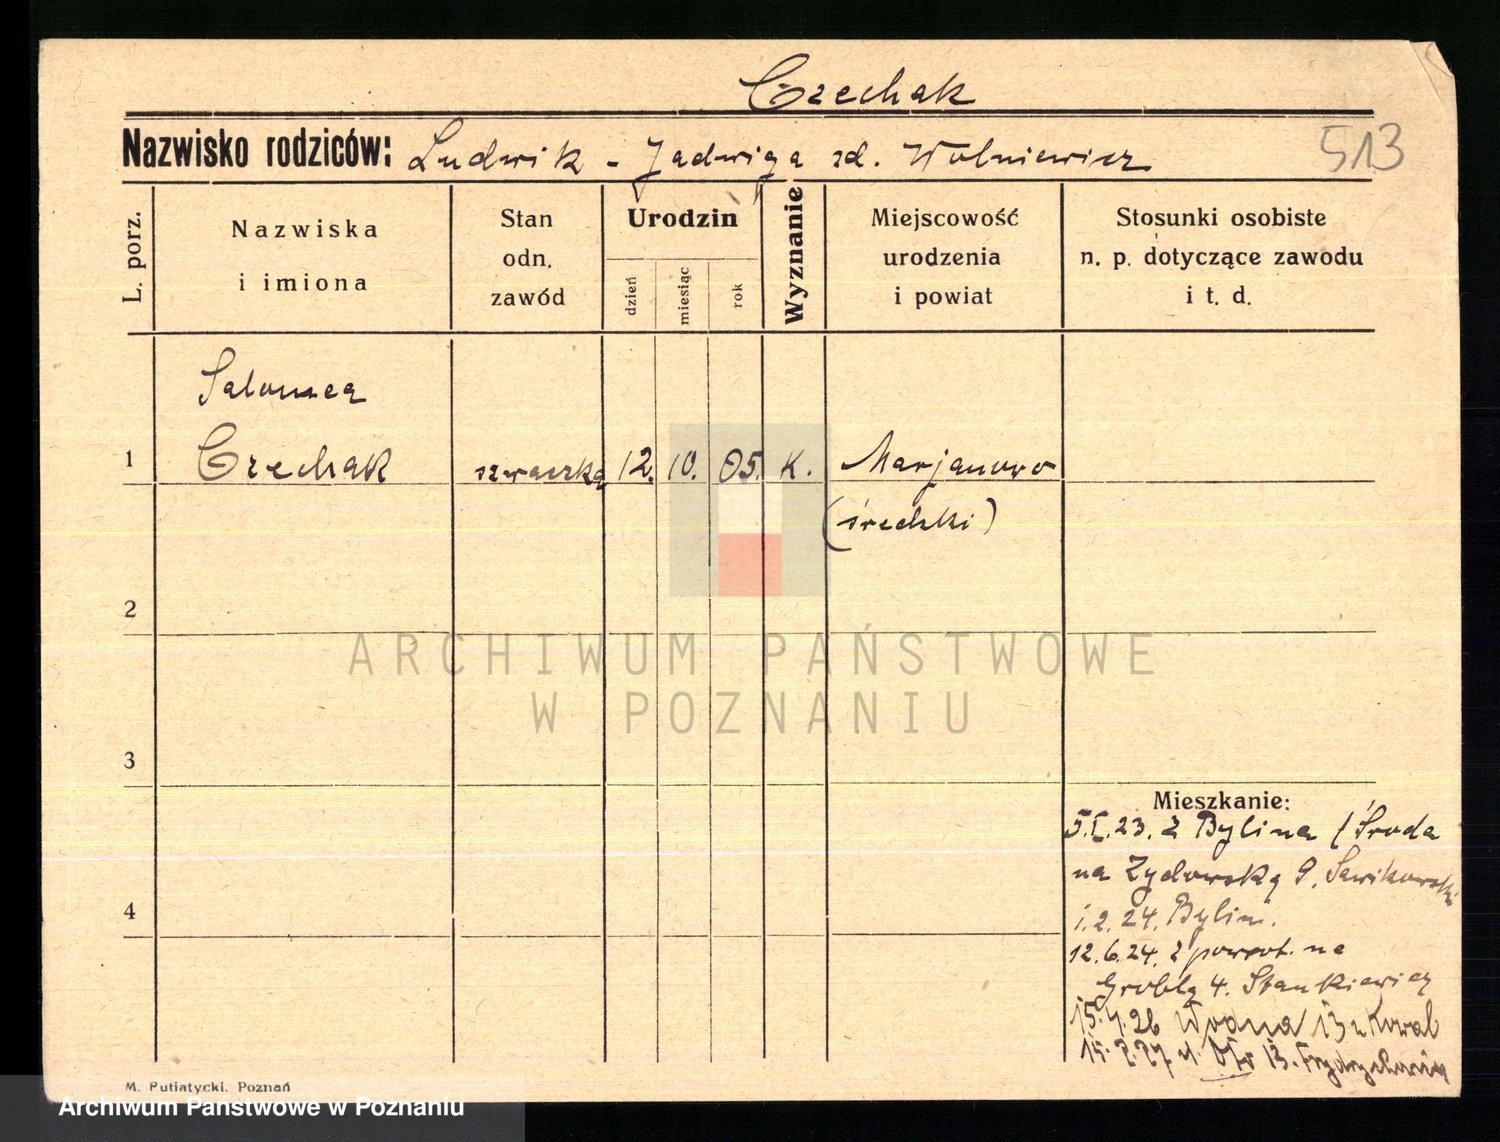 Czechak
Nazwisko rodziców: Ludwik - Jadwiga zd. Wolniewicz
513
L. porz.
Nazwiska
i imiona
Stan
odn.
zawód
Urodzin
dzień
miesiąc
rok
Wyznanie
Miejscowość
urodzenia
i powiat
Stosunki osobiste
n. p. dotyczące zawodu
i t. d.
Salomea
1 Czechak szwaczka 12. 10. 05. K. Marjanowo
(średzki)
2
ARCHIWUM PAŃSTWOWE
W POZNANIU
3
Mieszkanie:
5.I.23. z Bylina (Środa
na Żydowską 9. Sawikowski
4
1.2.24. Bylin.
12.6.24. z powrot. na
Groblą 4. Stankiewicz
15.4.26 Wodna 13 u Kowal
15.2.27 13.
M. Putiatycki. Poznań
Archiwum Państwowe w Poznaniu